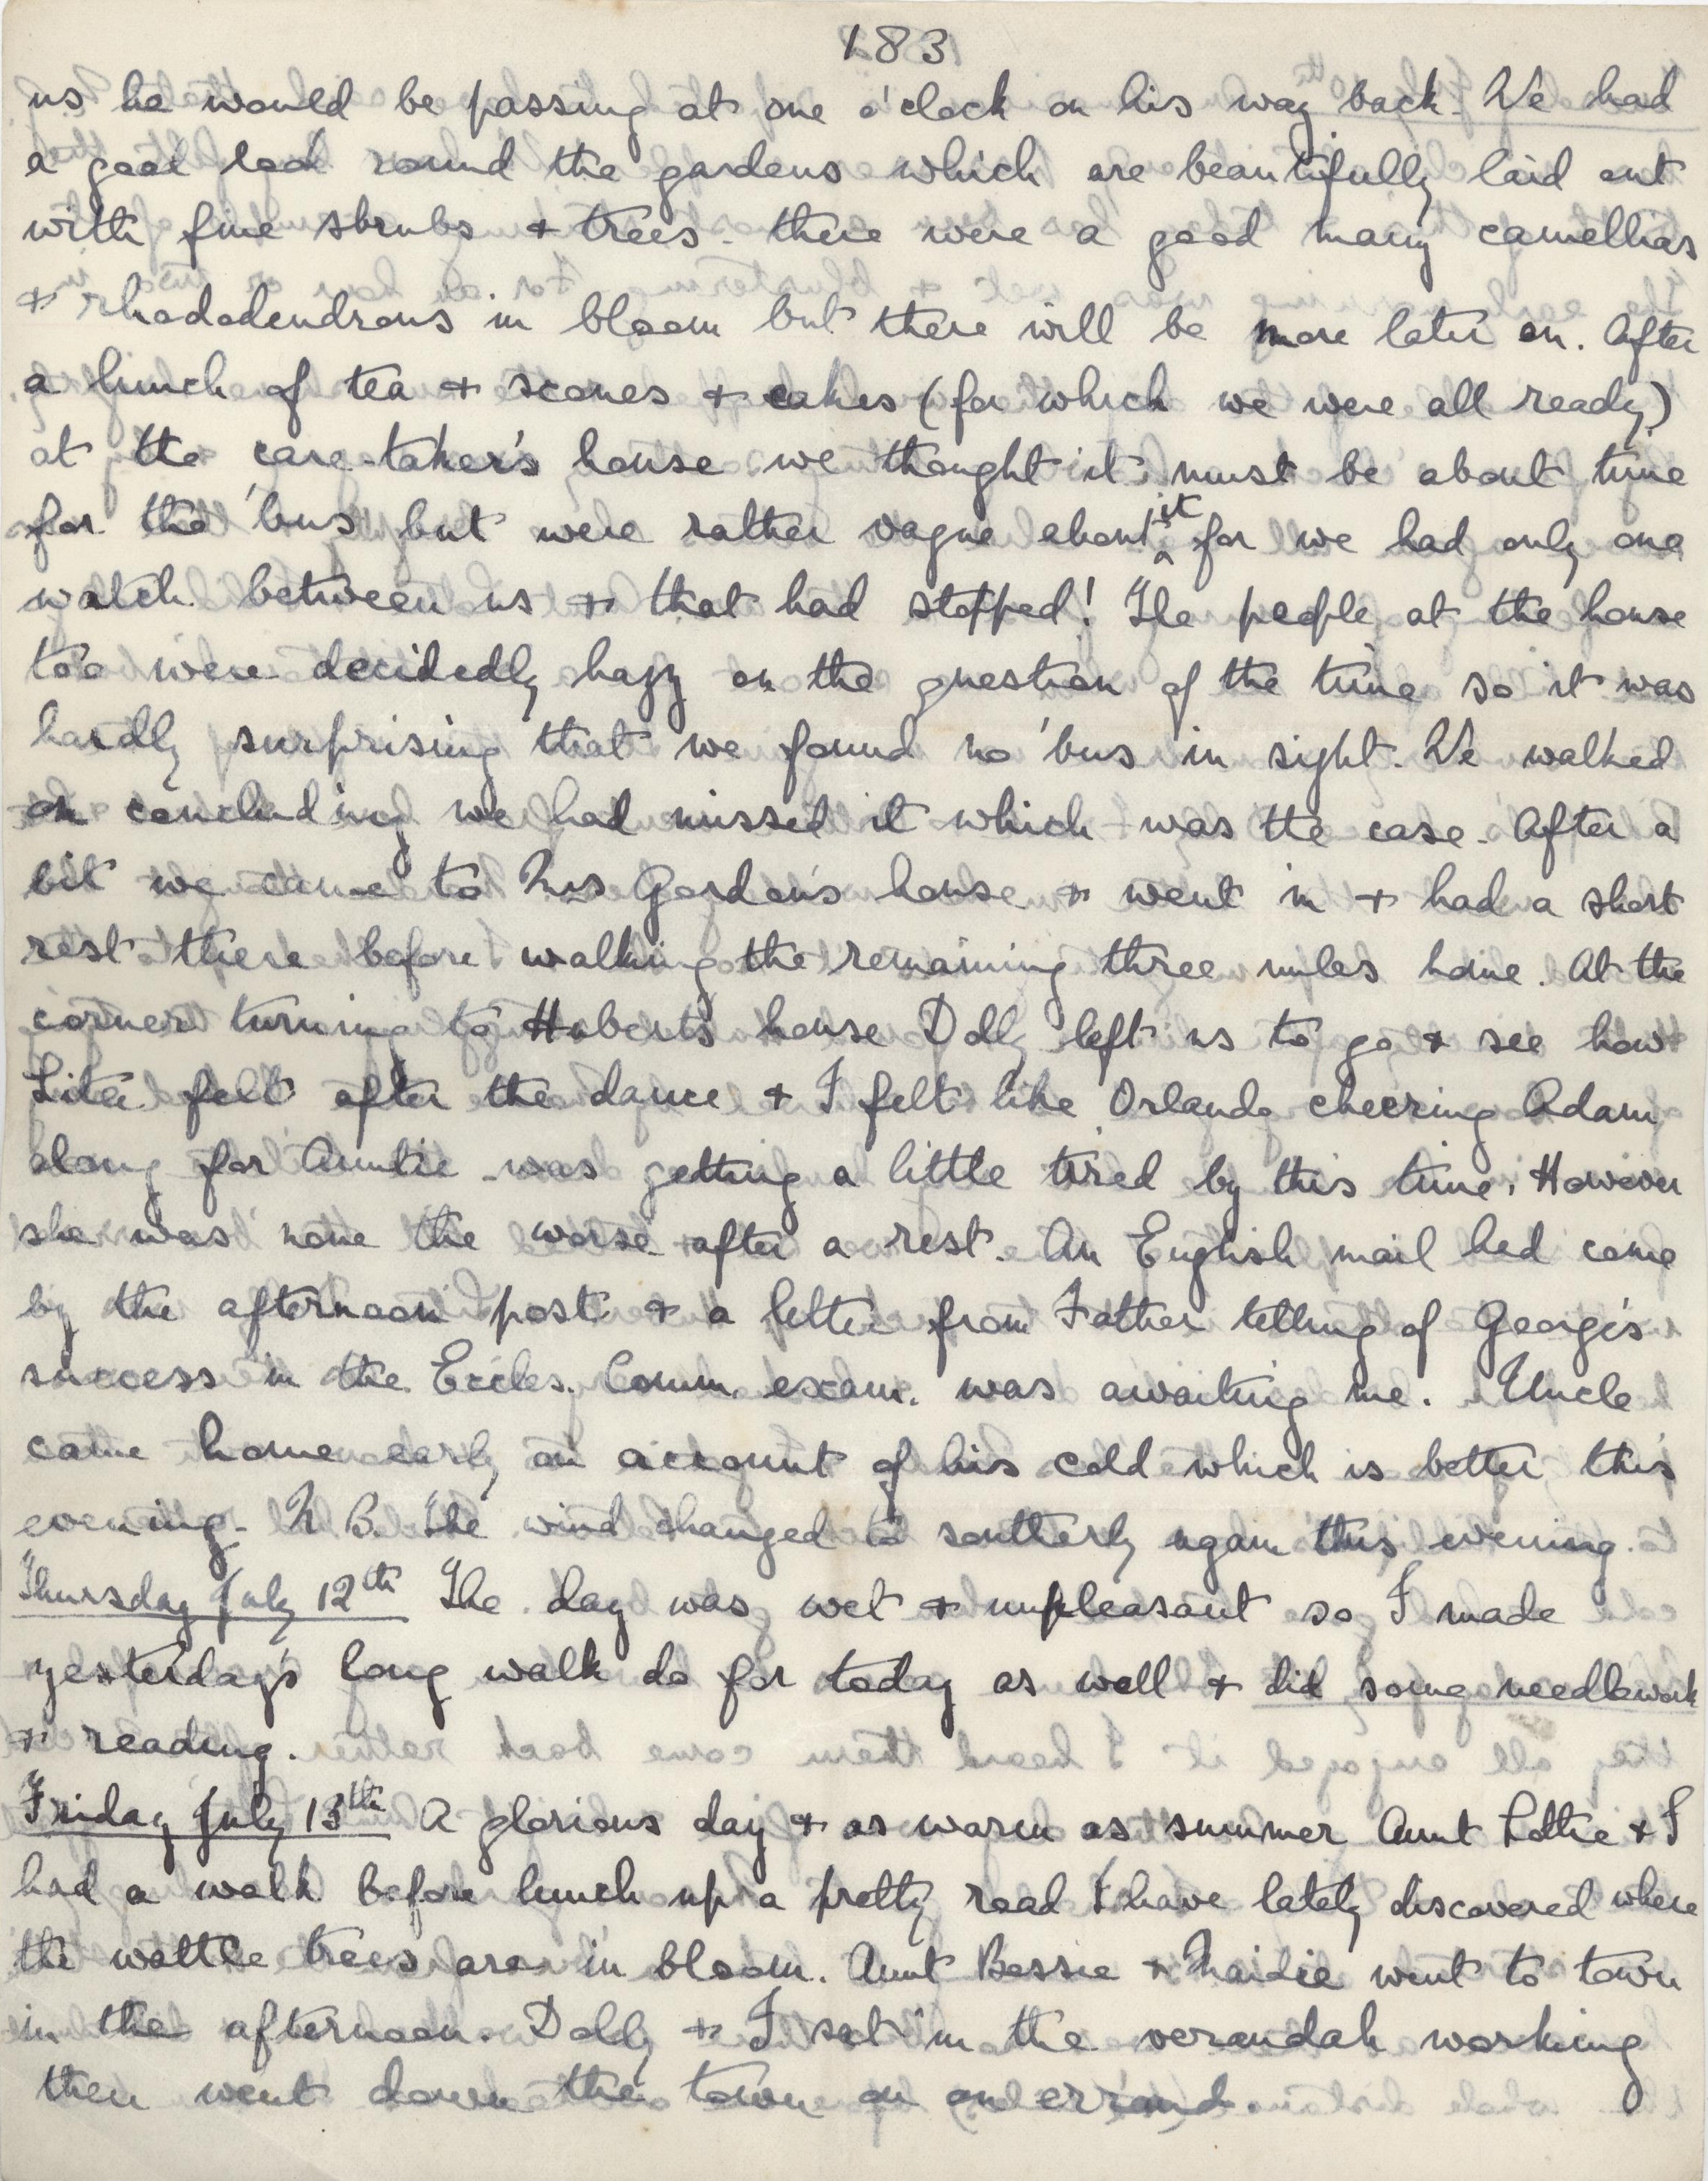 183
us he would be passing at one o'clock on his way back. We had
a good look round the gardens which are beautifully laid out
with fine shrubs & trees. there were a good many camellias
& rhododendrons in bloom but there will be more later on. After
a lunch of tea & scones & cakes (for which we were all ready)
at the care-taker's house we thought it must be about time
for the 'bus but were rather vague about it for we had only one
watch between us & that had stopped! The people at the house
too were decidedly hazy on the question of the time so it was
hardly surprising that we found no 'bus in sight. We walked
on concluding we had missed it which was the case. After a
bit we came to Mrs Gordon's house & went in & had a short
rest there before walking the remaining three miles home. At the
corner turning to Huberts house Dolly left us to go & see how
felt after the dance & I felt like Orlando cheering Adam
along for Auntie was getting a little tired by this time. However
she was none the worse after a rest. An English mail had come
by the afternoon post & a letter from Father telling of George's
success in the Eccles. Comm. exam. was awaiting me. Uncle
came home early on account of his cold which is better this
evening. N.B. The wind changed to southerly again this evening.
Thursday July 12th The day was wet & unpleasant so I made
yesterday's long walk do for today as well & did some needlework
& reading.
Friday July 13th A glorious day & as warm as summer Aunt Lottie & I
had a walk before lunch up a pretty road I have lately discovered where
the wattle trees are in bloom. Aunt Bessie & Maidie went to town
in the afternoon. Dolly & I sat in the verandah working
then went down the town on an errand.